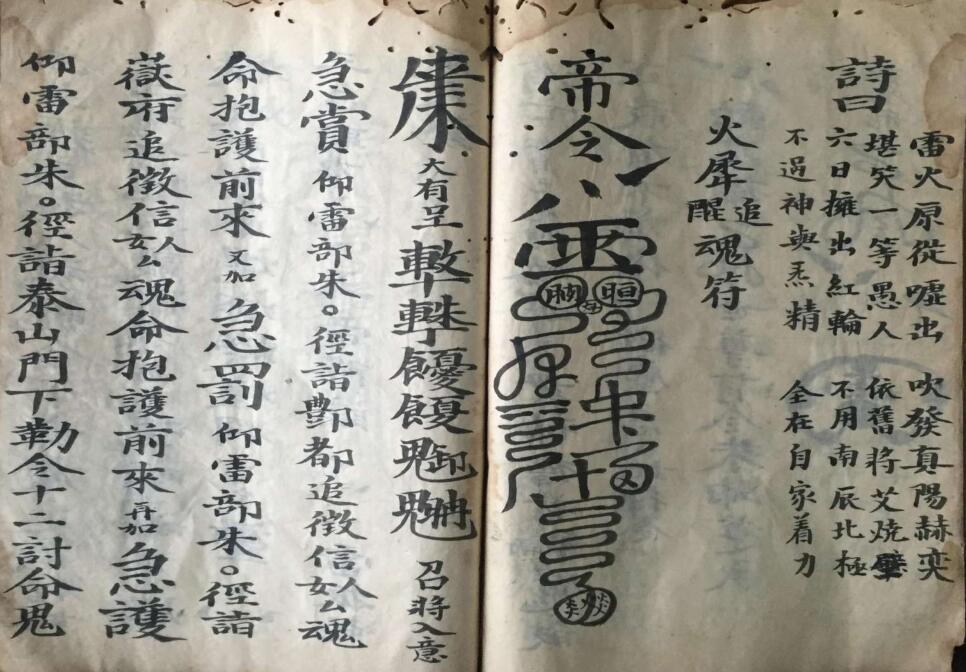 詩曰
雷火原從噓出 吹發真陽赫奕
堪笑一等愚人 依舊將艾燒
六日擁出紅輪 不用南辰北極
不過神與炁精 全在自家着力
火犀追醒魂符
帝令
大有呈 召將入意
急賞仰雷部朱。徑詣酆都追徵信人女么魂
命抱護前來又加急罰仰雷部朱。徑詣
嶽府追徵信人女么魂命抱護前來再加急護
仰雷部朱。徑詣泰山門下勒令十二討命鬼